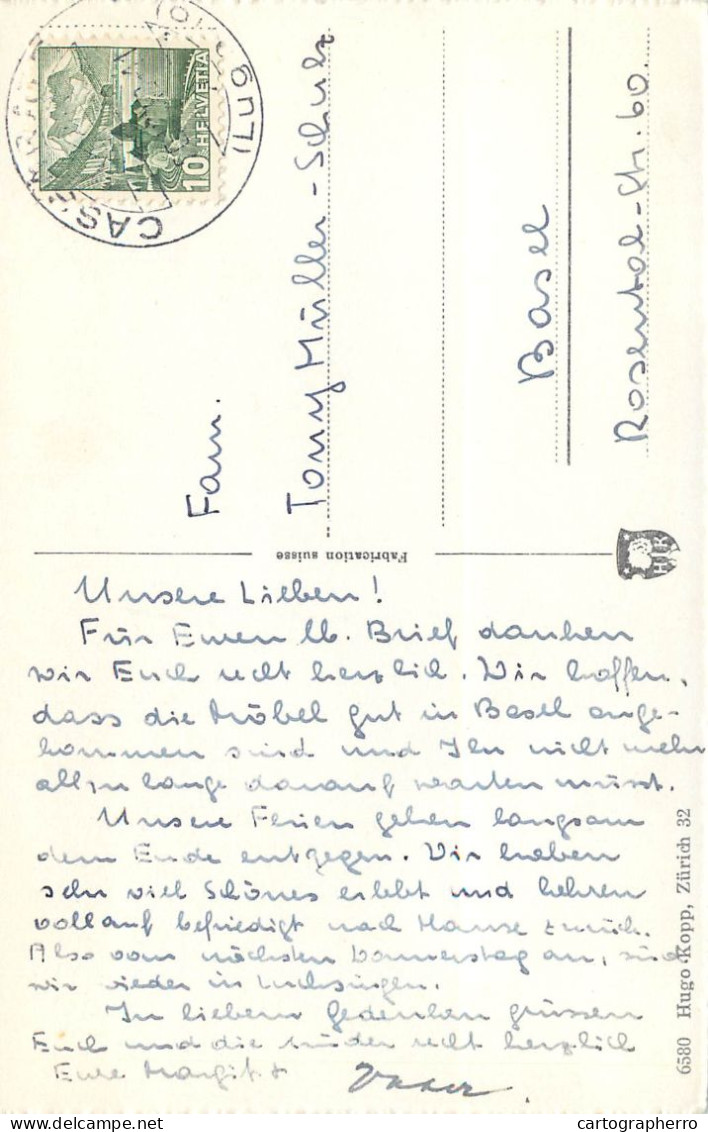 10 HELVETIA
Fam.
Tony Müller-Schulz
Basel
Rosental-Str. 60.
Fabrication suisse
HK
Unsere Lieben!
Für Euren lb. Brief danken
wir Euch recht herzlich. Wir hoffen,
dass die Möbel gut in Basel ange-
kommen sind und Ihr nicht mehr
allzu lange darauf warten müsst.
Unsere Ferien gehen langsam
dem Ende entgegen. Wir haben
sehr viel Schönes erlebt und kehren
vollauf befriedigt nach Hause zurück.
Also vom nächsten Donnerstag an, sind
wir wieder in Luchsingen.
In liebem Gedenken grüssen
Euch und die Kinder recht herzlich
Eure Margit +
6580 Hugo Kopp, Zürich 32
cartographerro